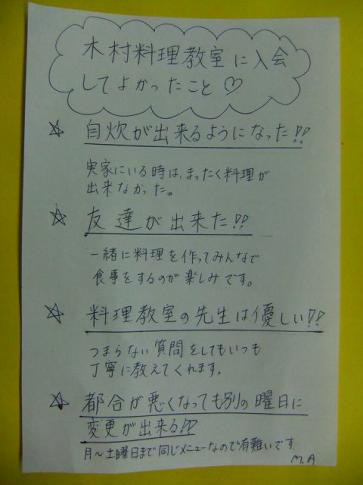 木村料理教室に入会
してよかったこと♡
☆ 自炊が出来るようになった!!
実家にいる時は、まったく料理が
出来なかった。
☆ 友達が出来た!!
一緒に料理を作ってみんなで
食事をするのが楽しみです。
☆ 料理教室の先生は優しい!!
つまらない質問をしてもいつも
丁寧に教えてくれます。
☆ 都合が悪くなっても別の曜日に
変更が出来る!!
月〜土曜日まで同じメニューなので有難いです
M.A